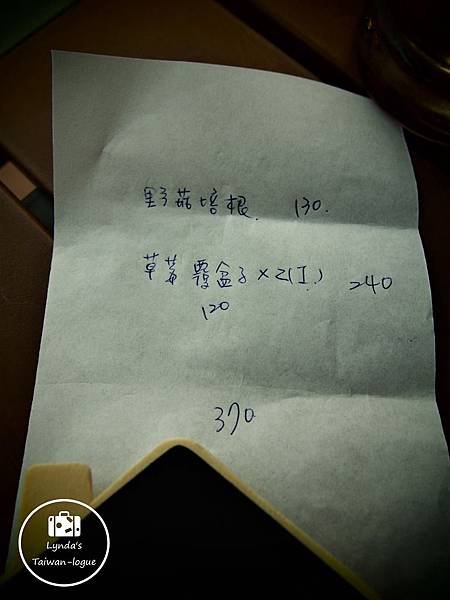 野菇培根. 130.
草莓覆盆子×2(I.) 240
120
370
Lynda's
Taiwan-logue